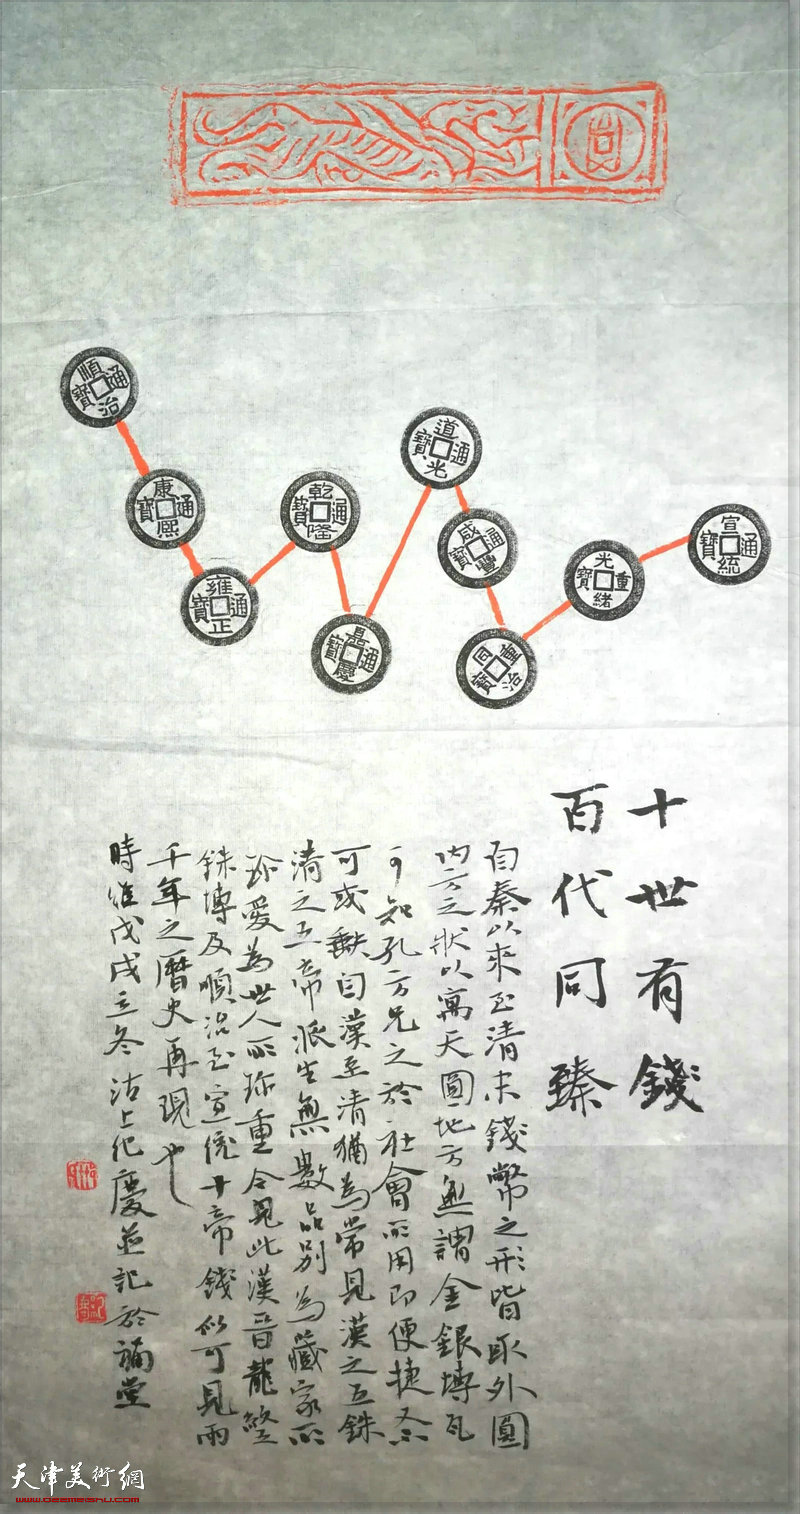 順治通寶
康熙通寶
雍正通寶
乾隆通寶
嘉慶通寶
道光通寶
咸豐通寶
同治重寶
光緒重寶
宣統通寶
十世有錢
百代同臻
自秦以來至清末錢幣之形皆取外圓
内方之狀以寓天圓地方無謂金銀塼瓦
可知孔方兄之於社會所用即便捷不
可或缺自漢至清猶為常見漢之五銖
清之五帝派生無數品别為藏家所
珍愛為世人所珍重今見此漢晉龍紋
銖塼及順治至宣統十帝錢似可見兩
千年之曆史再現也
時維戊戌立冬沽上化慶並記於福堂
天津美術網
www.beemeishu.com